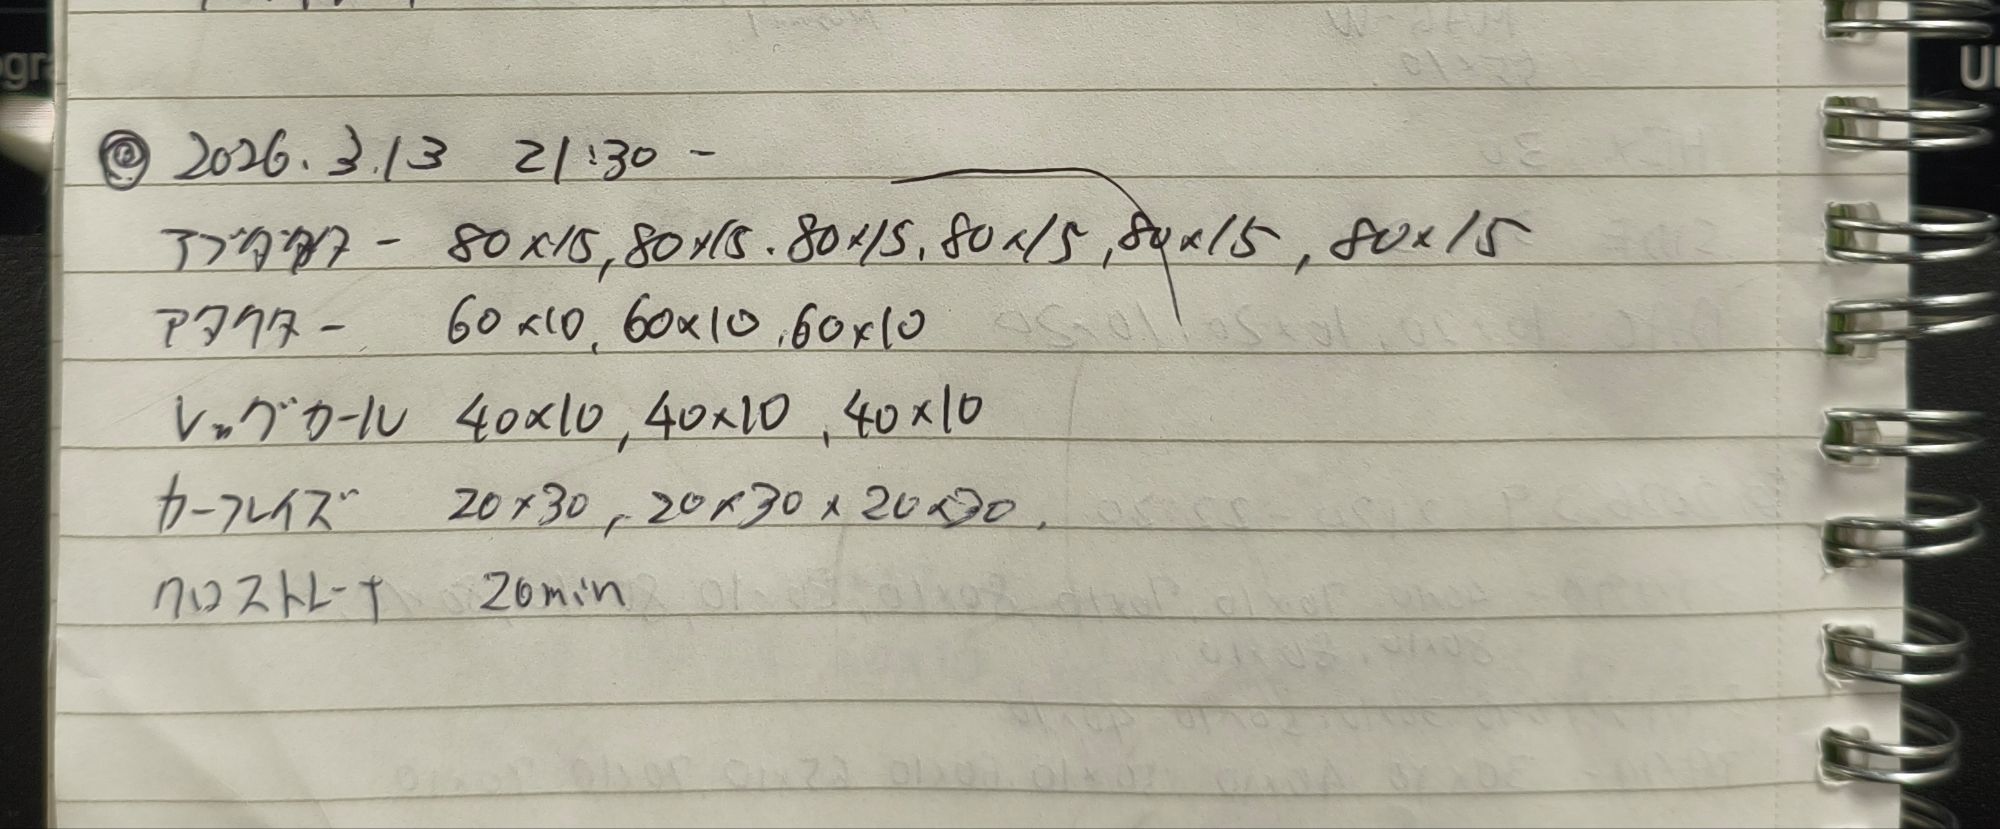 ◎ 2026.3.13 21:30 -
アブダクター 80×15, 80×15. 80×15, 80×15, 80×15, 80×15
アダクター 60×10, 60×10, 60×10
レッグカール 40×10, 40×10, 40×10
カーフレイズ 20×30, 20×30 × 20×30.
クロストレーナ 20min